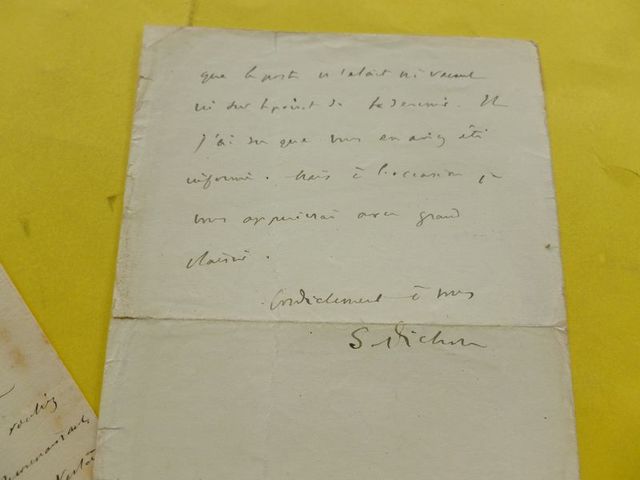 que le poste n'était ni vacant
ni sur le point de le devenir. Et
j'ai su que vous en aviez été
informé. Mais à l'occasion je
vous appuierai avec grand
plaisir.
Cordialement à vous
S. Pichon